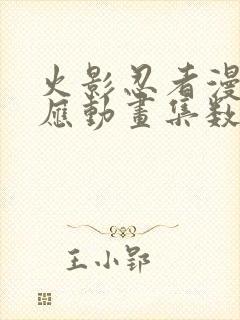 火影忍者漫
應動畫集数
王小郢